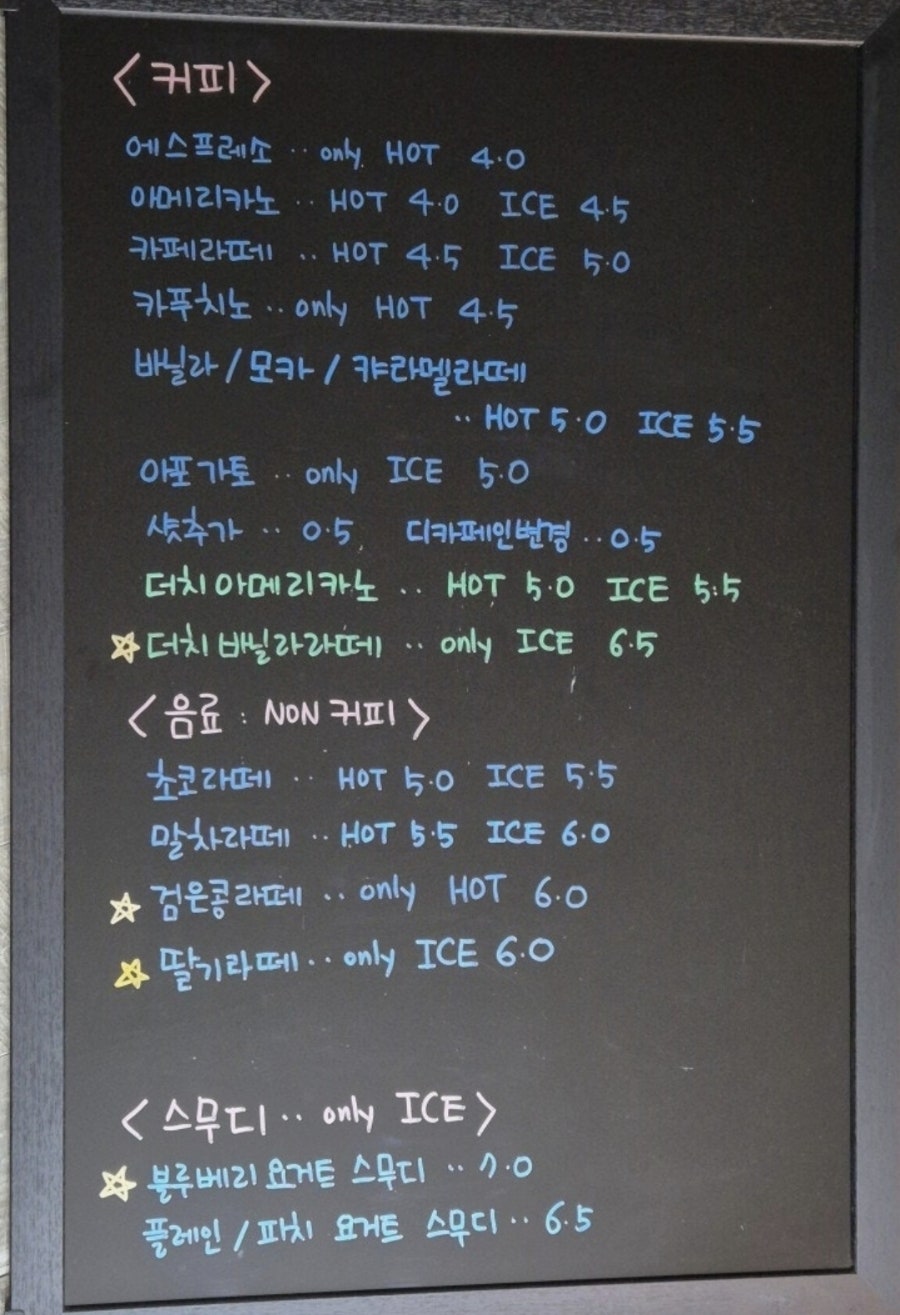 <커피>
에스프레소 ·· only HOT 4.0
아메리카노 ·· HOT 4.0 ICE 4.5
카페라떼 ·· HOT 4.5 ICE 5.0
카푸치노 ·· only HOT 4.5
바닐라 / 모카 / 캬라멜라떼
·· HOT 5.0 ICE 5.5
아포가토 ·· only ICE 5.0
샷추가 ·· 0.5 디카페인변경 ·· 0.5
더치아메리카노 ·· HOT 5.0 ICE 5.5
☆더치바닐라라떼 ·· only ICE 6.5
<음료 : NON 커피>
초코라떼 ·· HOT 5.0 ICE 5.5
말차라떼 ·· HOT 5.5 ICE 6.0
☆ 검은콩라떼 ·· only HOT 6.0
☆ 딸기라떼 ·· only ICE 6.0
<스무디 ·· only ICE>
☆ 블루베리 요거트 스무디 ·· 7.0
플레인 / 파치 요거트 스무디 ·· 6.5